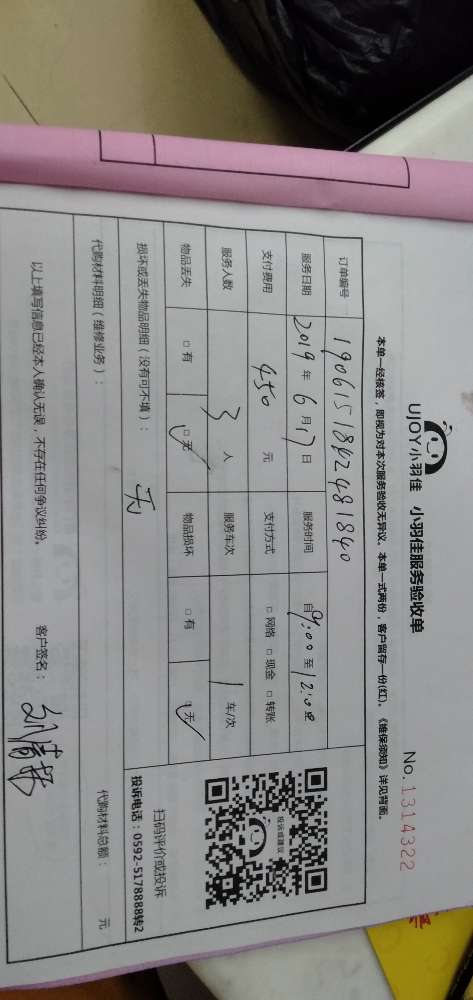 UJOY小羽佳 小羽佳服务验收单 No. 1314322
本单一经核签，即视为对本次服务验收无异议。本单一式两份，客户留存一份(红)。《维保须知》详见背面。
订单编号 1906151842481840
服务日期 2019 年 6 月 17 日 服务时间 自 9:00 至 12:00
支付费用 450 元 支付方式 □ 网络 □ 现金 □ 转账
服务人数 3 人 服务车次 1 车/次
物品丢失 □ 有 □ 无 物品损坏 □ 有 □ 无
损坏或丢失物品明细（没有可不填）： 无
投诉或建议
扫码评价或投诉
投诉电话：0592-5178888转2
代购材料明细（维修业务）： 代购材料总额： 元
以上填写信息已经本人确认无误，不存在任何争议纠纷。 客户签名：